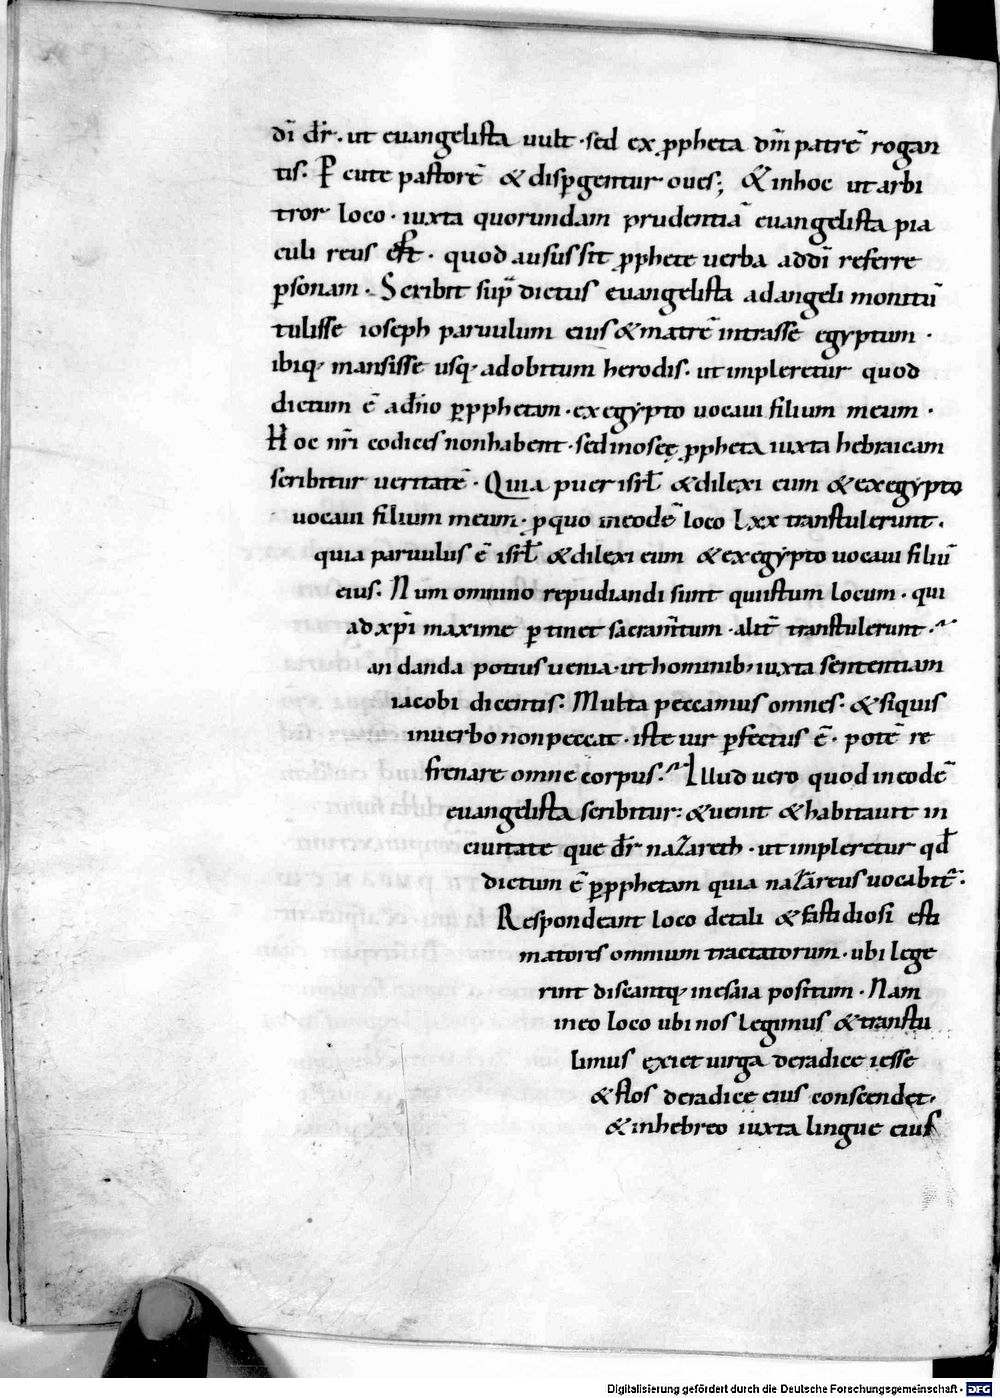 dī dr̄. ut euangelista uult. sed ex ꝓpheta dm̄ patrē rogan
tis. Ꝑcute pastorē & dispꝑgentur oues; & inhoc ut arbi
tror loco. iuxta quorundam prudentiā euangelista pia
culi reus est. quod aususs sit ꝓphete uerba addī referre
ꝑsonam. Scribit sup̄dictus euangelista adangeli monitū
tulisse ioseph paruulum eius & matrē intrasse egyptum.
ibiq; mansisse usq; adobitum herodis. ut impleretur quod
dictum ē adn̄o ꝑꝓphetam. exegypto uocaui filium meum.
Hoc nr̄i codices nonhabent. sed inoseę ꝓpheta iuxta hebraicam
scribitur ueritatē. Quia puer isrł & dilexi eum & exegypto
uocaui filium meum. ꝓquo ineodē loco Lxx transtulerunt.
quia paruulus ē isrł & dilexi eum & exegypto uocaui filiū
eius. Num omnino repudiandi sunt quiistum locum. qui
adxp̄i maxime ꝑtinet sacram̄tum. alit̄ transtulerunt.
an danda potius uenia. ut hominib; iuxta sententiam
iacobi dicentis. Multa peccamus omnes. & siquis
inuerbo nonpeccat. iste uir ꝑfectus ē. potē re
frenare omne corpus. Illud uero quod ineodē
euangelista scribitur: & uenit & habitauit in
ciuitate que dr̄ nazareth. ut impleretur qd̄
dictum ē ꝑꝓphetam quia nazareus uocabit̄.
Respondeant loco detali & fastidiosi esti
matores omnium tractatorum. ubi lege
rint discantq; inesaia positum. Nam
ineo loco ubi nos legimus & transtu
limus exiet uirga deradice iesse
& flos deradice eius conscendet.
& inhebreo iuxta lingue eius
Digitalisierung gefördert durch die Deutsche Forschungsgemeinschaft - DFG